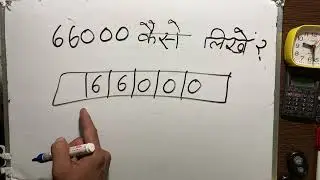 66000 कैसे लिखें?
66000